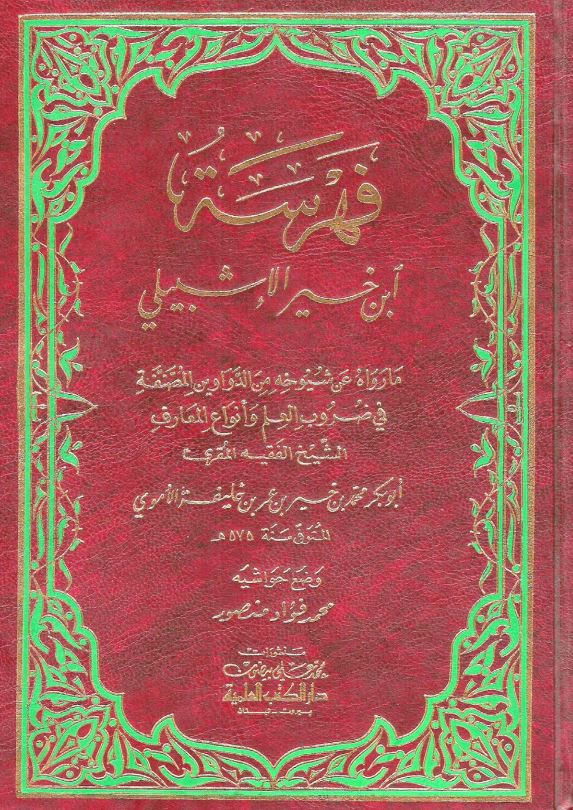 فَهْرَسَةُ
ابن خير الإشبيلي
مَا رَوَاهُ عَن شُيُوخِهِ مِنَ الدَّوَاوِينِ المُصَنَّفَةِ
في ضُرُوبِ العِلمِ وَأنوَاعِ المَعَارِفِ
الشَّيْخ الفَقيه المُقرئ
أبو بكر محمد بن خير بن عمر بن خليفة الأموي
المتوفى سَنة ٥٧٥ هـ
وَضَعَ حَوَاشيه
محمد فؤاد منصور
منشورات
محمد علي بيضون
دار الكتب العلمية
بيروت - لبنان